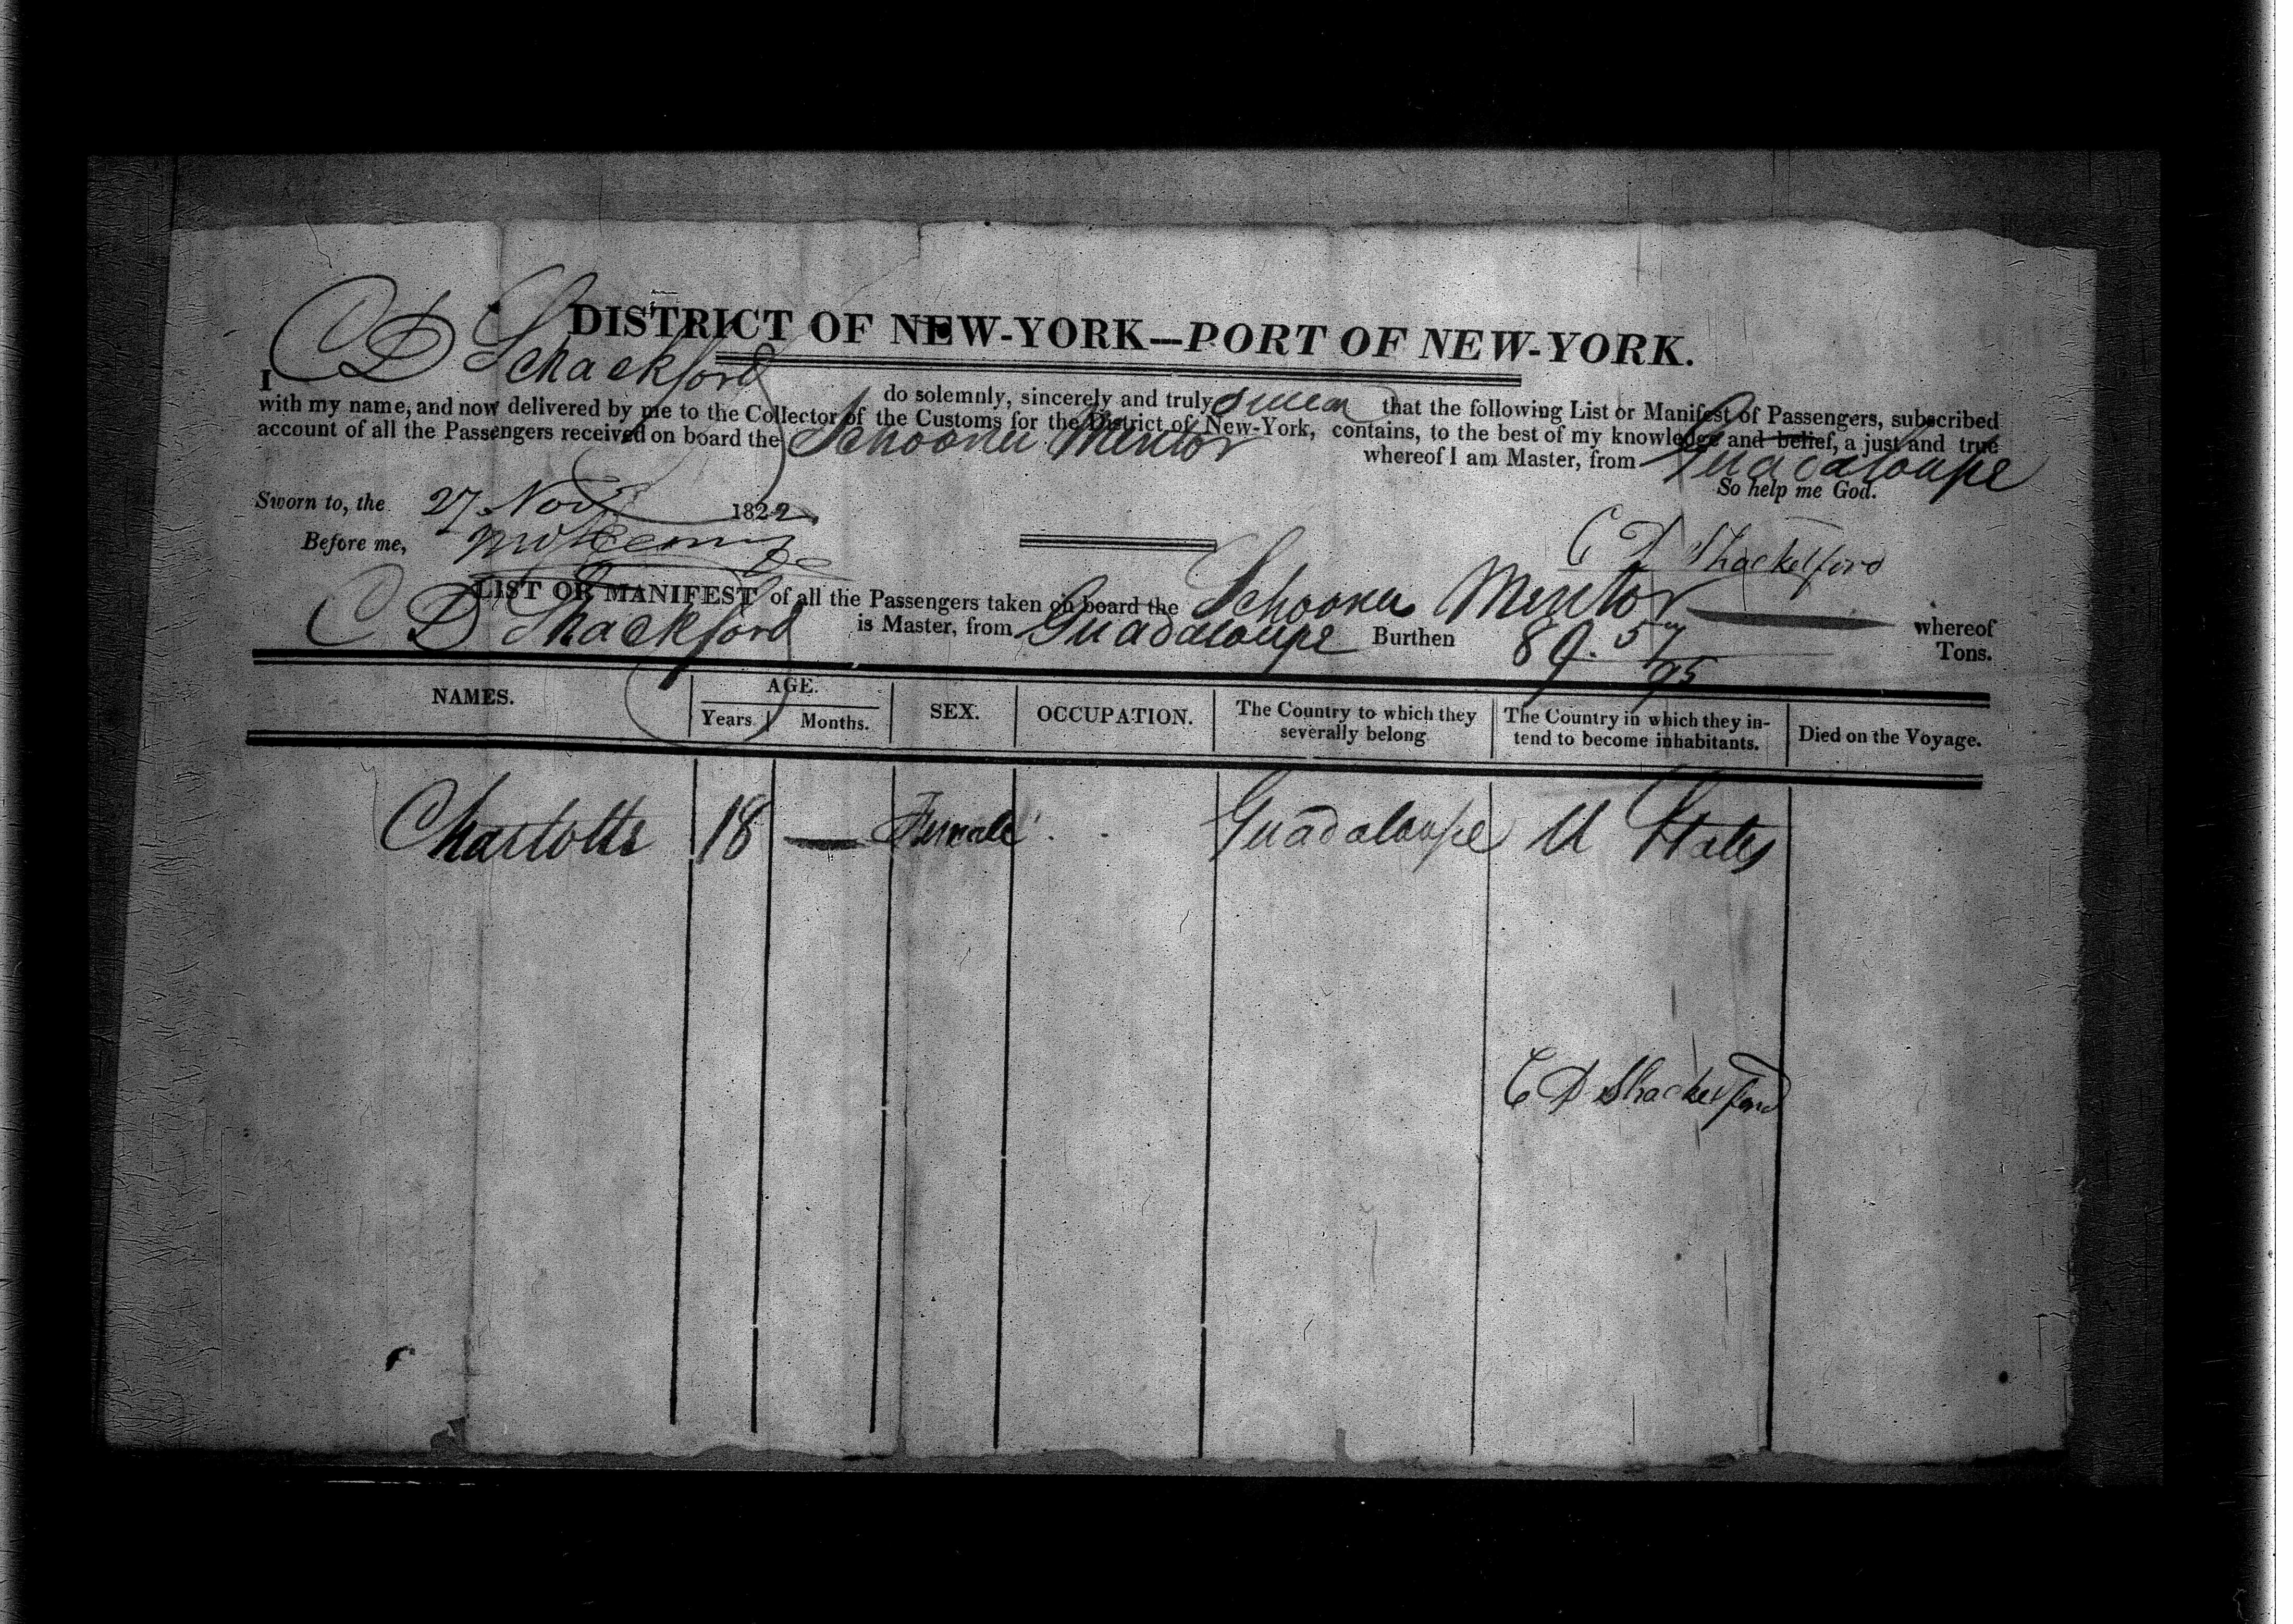 DISTRICT OF NEW-YORK—PORT OF NEW-YORK.
I C D Shackford do solemnly, sincerely and truly swear that the following List or Manifest of Passengers, subscribed
with my name, and now delivered by me to the Collector of the Customs for the District of New-York, contains, to the best of my knowledge and belief, a just and true
account of all the Passengers received on board the Schooner Mentor whereof I am Master, from Guadaloupe
So help me God.
Sworn to, the 27 Nov 1822
Before me,
C D Shackelford
LIST OR MANIFEST of all the Passengers taken on board the Schooner Mentor whereof
C D Shackford is Master, from Guadaloupe Burthen 89. 57/95 Tons.
NAMES. AGE. Years Months. SEX. OCCUPATION. The Country to which they severally belong The Country in which they intend to become inhabitants. Died on the Voyage.
Charlotte 18 — Female Guadaloupe U States
C D Shackelford